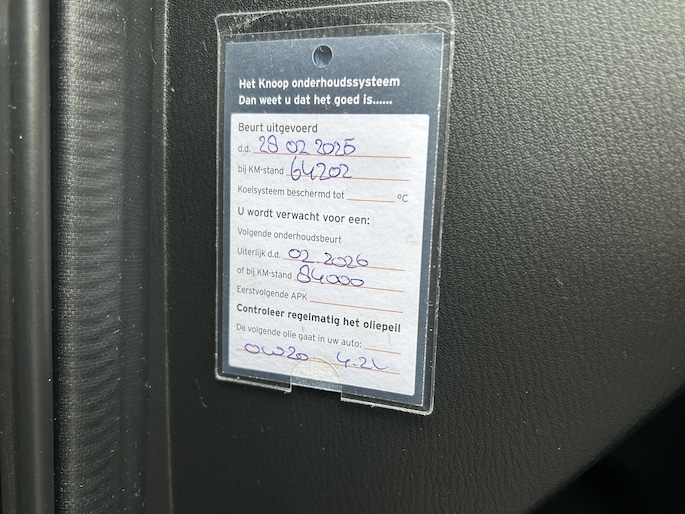 Het Knoop onderhoudssysteem
Dan weet u dat het goed is......
Beurt uitgevoerd
d.d. 28 02 2025
bij KM-stand 64202
Koelsysteem beschermd tot °C
U wordt verwacht voor een:
Volgende onderhoudsbeurt
Uiterlijk d.d. 02 2026
of bij KM-stand 84000
Eerstvolgende APK
Controleer regelmatig het oliepeil
De volgende olie gaat in uw auto:
0W20 4.2L